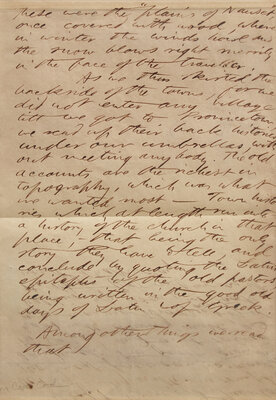 these were the "plains of Nauset,"
once covered with wood, where
in winter the winds howl and
the snow blows right merrily
in the face of the traveller.
As we thus skirted the
backside of the towns, for we
did not enter any village
till we got to Provincetown
we read up their back histories
under our umbrellas, with
out meeting any body. The old
accounts are the richest in
topography, which was what
we wanted most — Town histo
ries which at length run into
a history of the church in that
place, — that being the only
story they have to tell and
conclude by quoting the Latin
epitaphs of the old pastors
being written in the good old
days of Latin & of Greek.
Among other things we read
that